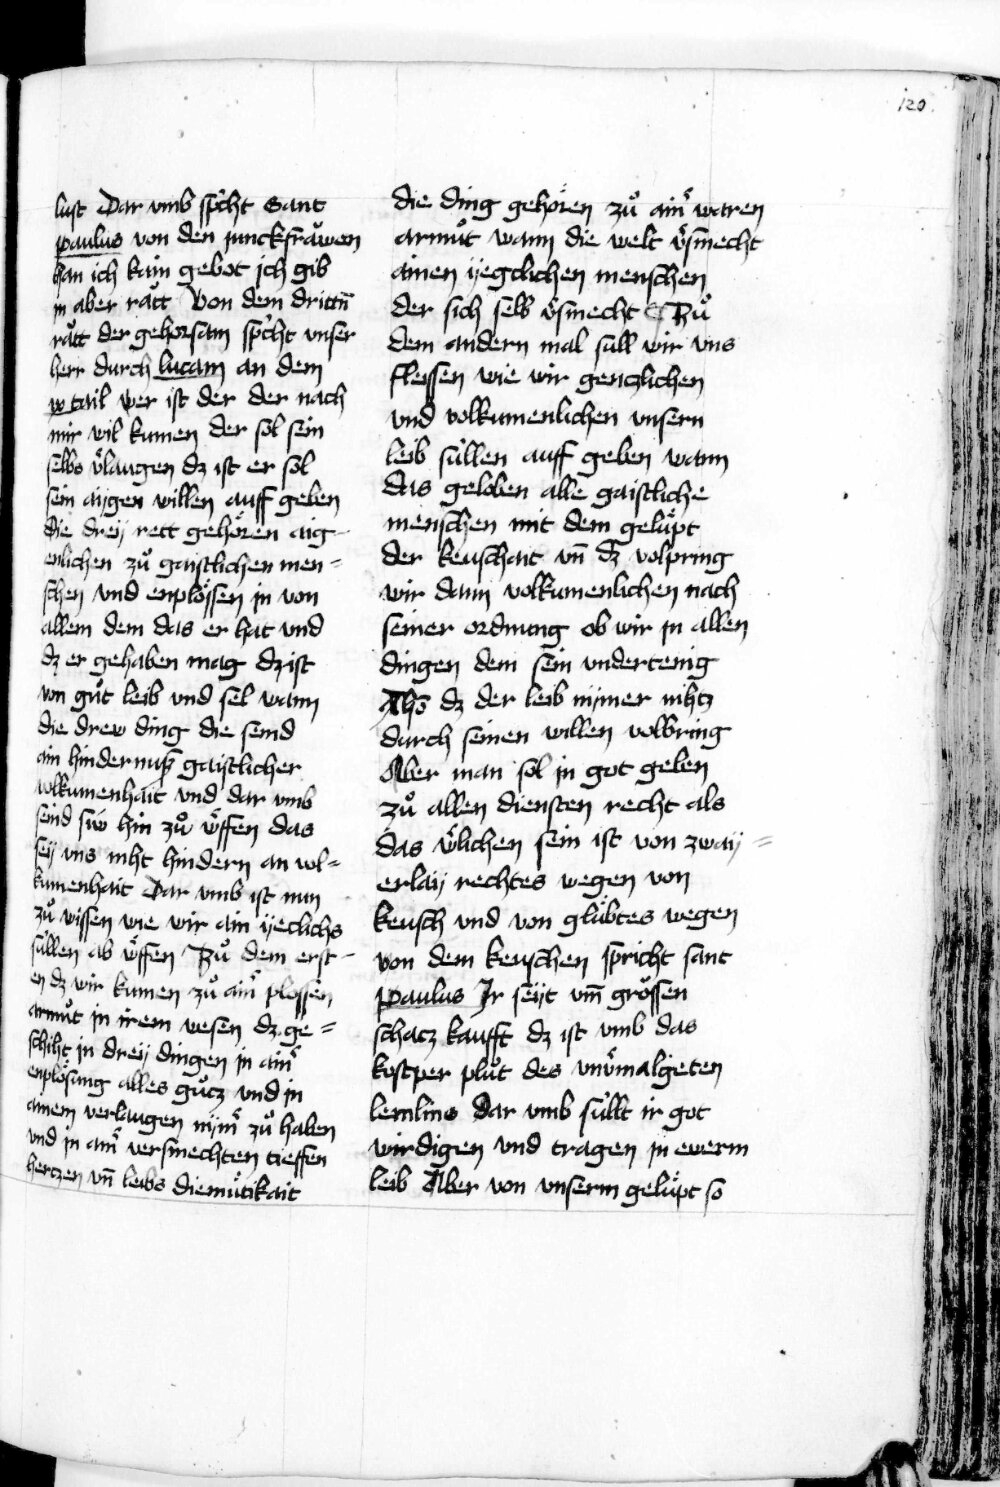 120
lust Dar vmb spͨht Sant
paulus von den junckfrawen
han ich kain gebot jch gib
in aber rătt Von dem drittn̄
rătt der gehorsam spͨht vnser
herr durch lucam an dem
tail Wer ist der der nach
mir wil kumen der sol sein
selbs v̾laugen dz ist er sol
sein aygen willen auff geben
die dreÿ rett gehören aig-
enlichen zuͦ gaistlichen men=
schen vnd enplössen jn von
allem dem das er hat vnd
dz er gehaben mag dz ist
von guͦt leib vnd sel wann
die drew ding die seind
ain hindernuß gaistlicher
volkumenhait vnd dar vmb
seind siw hin zuͦ wͤffen das
seÿ vns niht hindern an vol=
kumenhait Dar vmb ist nun
zuͦ wissen wie wir ain ÿeclichs
süllen ab wͤffen Zuͦ dem erst-
en dz wir kumen zuͦ aim̾ plossen
armuͦt in irem wesen dz ge=
schiht in dreÿ dingen in aim̾
enplösung alles guͦcz vnd in
ainem verlaugen nÿm̾ zuͦ haben
vnd in aim̾ versmechten tieffen
hertzen vn̄ leibs diemuͤtikait
die ding gehören zuͦ aim̾ waren
armuͦt wann die welt v̾smecht
ainen ÿegclichen menschen
der sich selb v̾smecht Zuͦ
dem andern mal süll wir vns
fleissen wie wir genczlichen
vnd volkumenlichen vnsern
leib süllen auff geben wann
das geloben alle gaistliche
menschen mit dem gelüpt
der keuschait vn̄ dz volpring
wir dann volkumenlichen nach
seiner ordnung ob wir jn allen
dingen dem sein vndertenig
Also dz der leib nÿmer nihtz
durch seinen willen volbring
Aber man sol jn got geben
zuͦ allen diensten recht als
das wͤlichen sein ist von zwaÿ=
erlaÿ rechtes wegen von
keusch vnd von glübtes wegen
von dem keuschen spricht sant
paulus Jr seÿt vm̄ grössen
schacz kaufft dz ist vmb das
kostper pluͦt des vnv̾malgeten
lemlins Dar vmb süllt ir got
wirdigen vnd tragen jn ewerm
leib Aber von vnserm gelüpt so